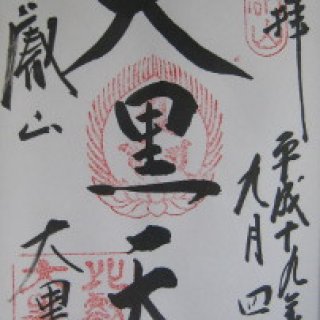 拝
平成十九年
九月四
大黒天
叡山
大黒